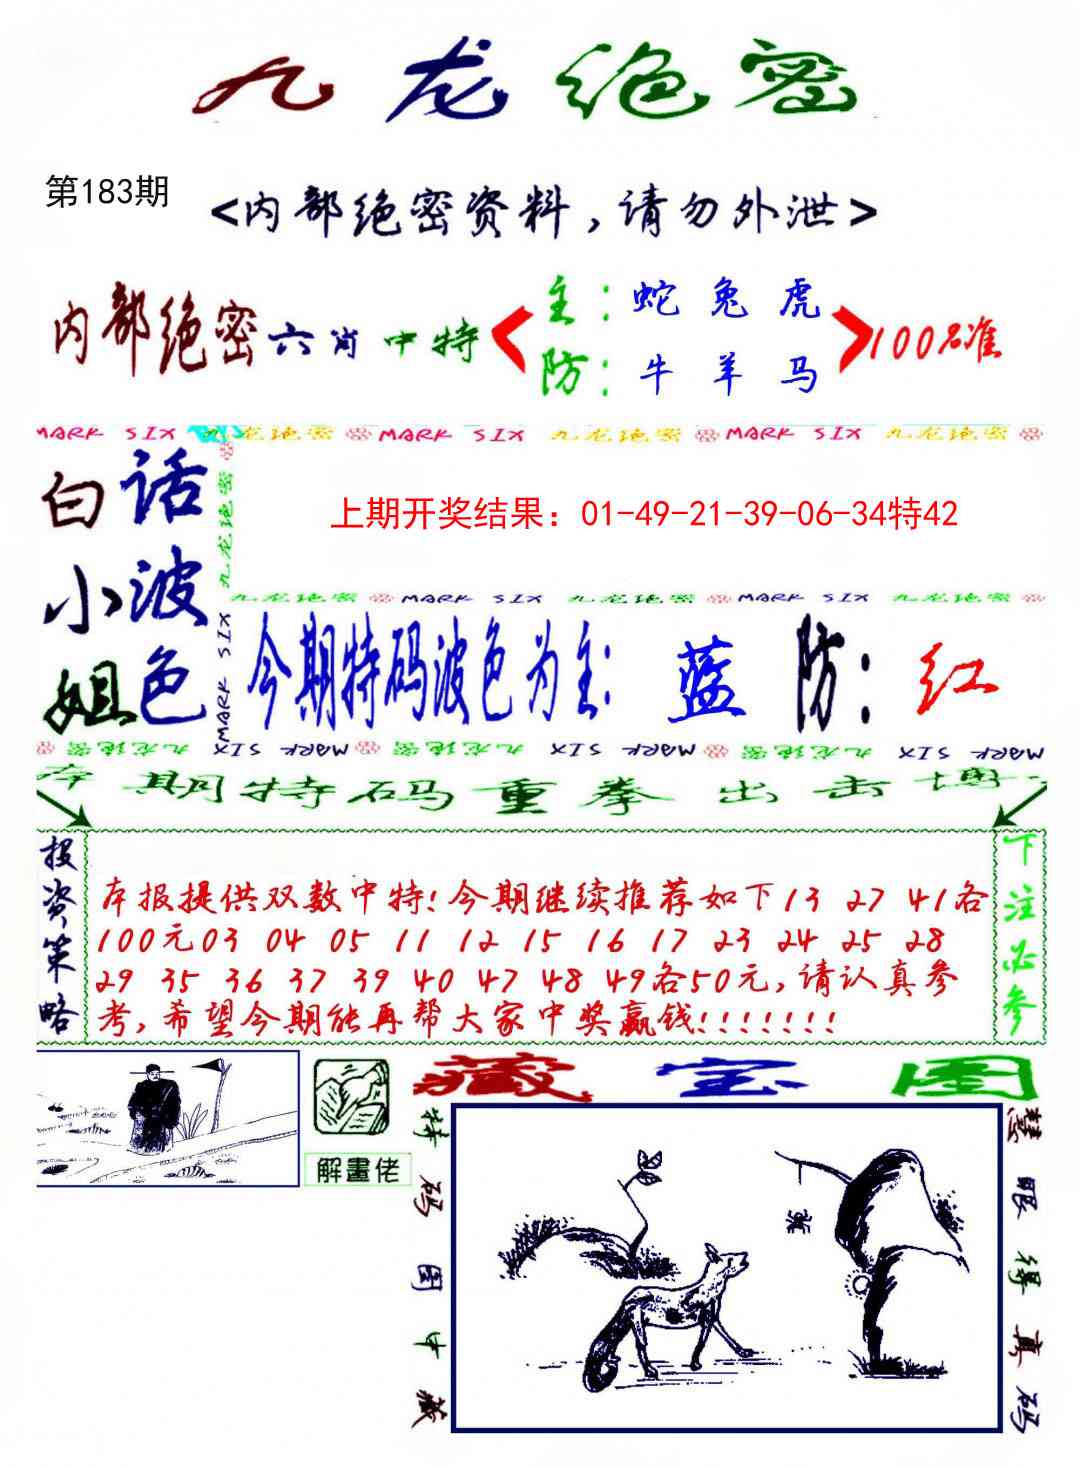 九龙绝密
第183期
<内部绝密资料,请勿外泄>
内部绝密六肖中特
主:蛇兔虎
防:牛羊马
100%准
MARK SIX 九龙绝密 MARK SIX 九龙绝密 MARK SIX 九龙绝密
白小姐
话波色
九龙绝密 MARK SIX
上期开奖结果：01-49-21-39-06-34特42
九龙绝密 MARK SIX 九龙绝密 MARK SIX 九龙绝密
今期特码波色为主: 蓝 防: 红
九龙绝密 MARK SIX 九龙绝密 MARK SIX 九龙绝密 MARK SIX
本期特码重拳出击博
投资策略
本报提供双数中特!今期继续推荐如下13 27 41各
100元03 04 05 11 12 15 16 17 23 24 25 28
29 35 36 37 39 40 47 48 49各50元,请认真参
考,希望今期能再帮大家中奖赢钱!!!!!!!
下注必参
解畫佬
藏宝图
特码图中藏
慧眼得真码